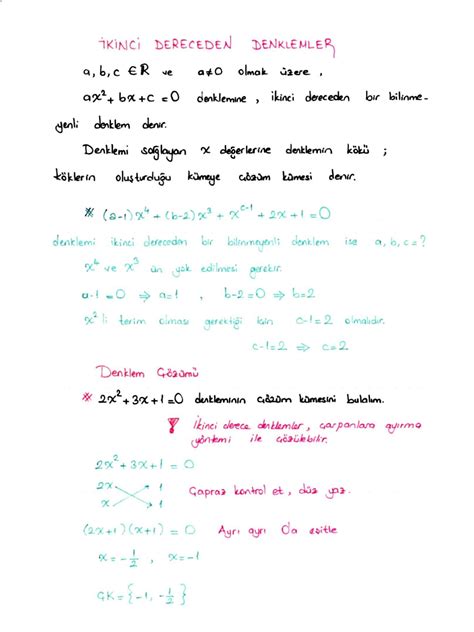 İKİNCİ DERECEDEN DENKLEMLER
a, b, c ∈ ℝ ve a≠0 olmak üzere,
ax² + bx + c = 0 denklemine, ikinci dereceden bir bilinme-
yenli denklem denir.
Denklemi sağlayan x değerlerine denklemin kökü ;
köklerin oluşturduğu kümeye çözüm kümesi denir.
※ (a-1)x⁴ + (b-2)x³ + x^(c-1) + 2x + 1 = 0
denklemi ikinci dereceden bir bilinmeyenli denklem ise a, b, c = ?
x⁴ ve x³ ün yok edilmesi gerekir.
a-1 = 0 ⇒ a=1 , b-2=0 ⇒ b=2
x² li terim olması gerektiği için c-1=2 olmalıdır.
c-1=2 ⇒ c=2
Denklem Çözümü
※ 2x²+3x+1=0 denkleminin çözüm kümesini bulalım.
İkinci derece denklemler, çarpanlara ayırma
yöntemi ile çözülebilir.
2x² + 3x + 1 = 0
2x 1
x 1
Çapraz kontrol et, düz yaz.
(2x+1)(x+1) = 0 Ayrı ayrı 0'a eşitle
x = -1/2 , x = -1
ÇK = {-1, -1/2}